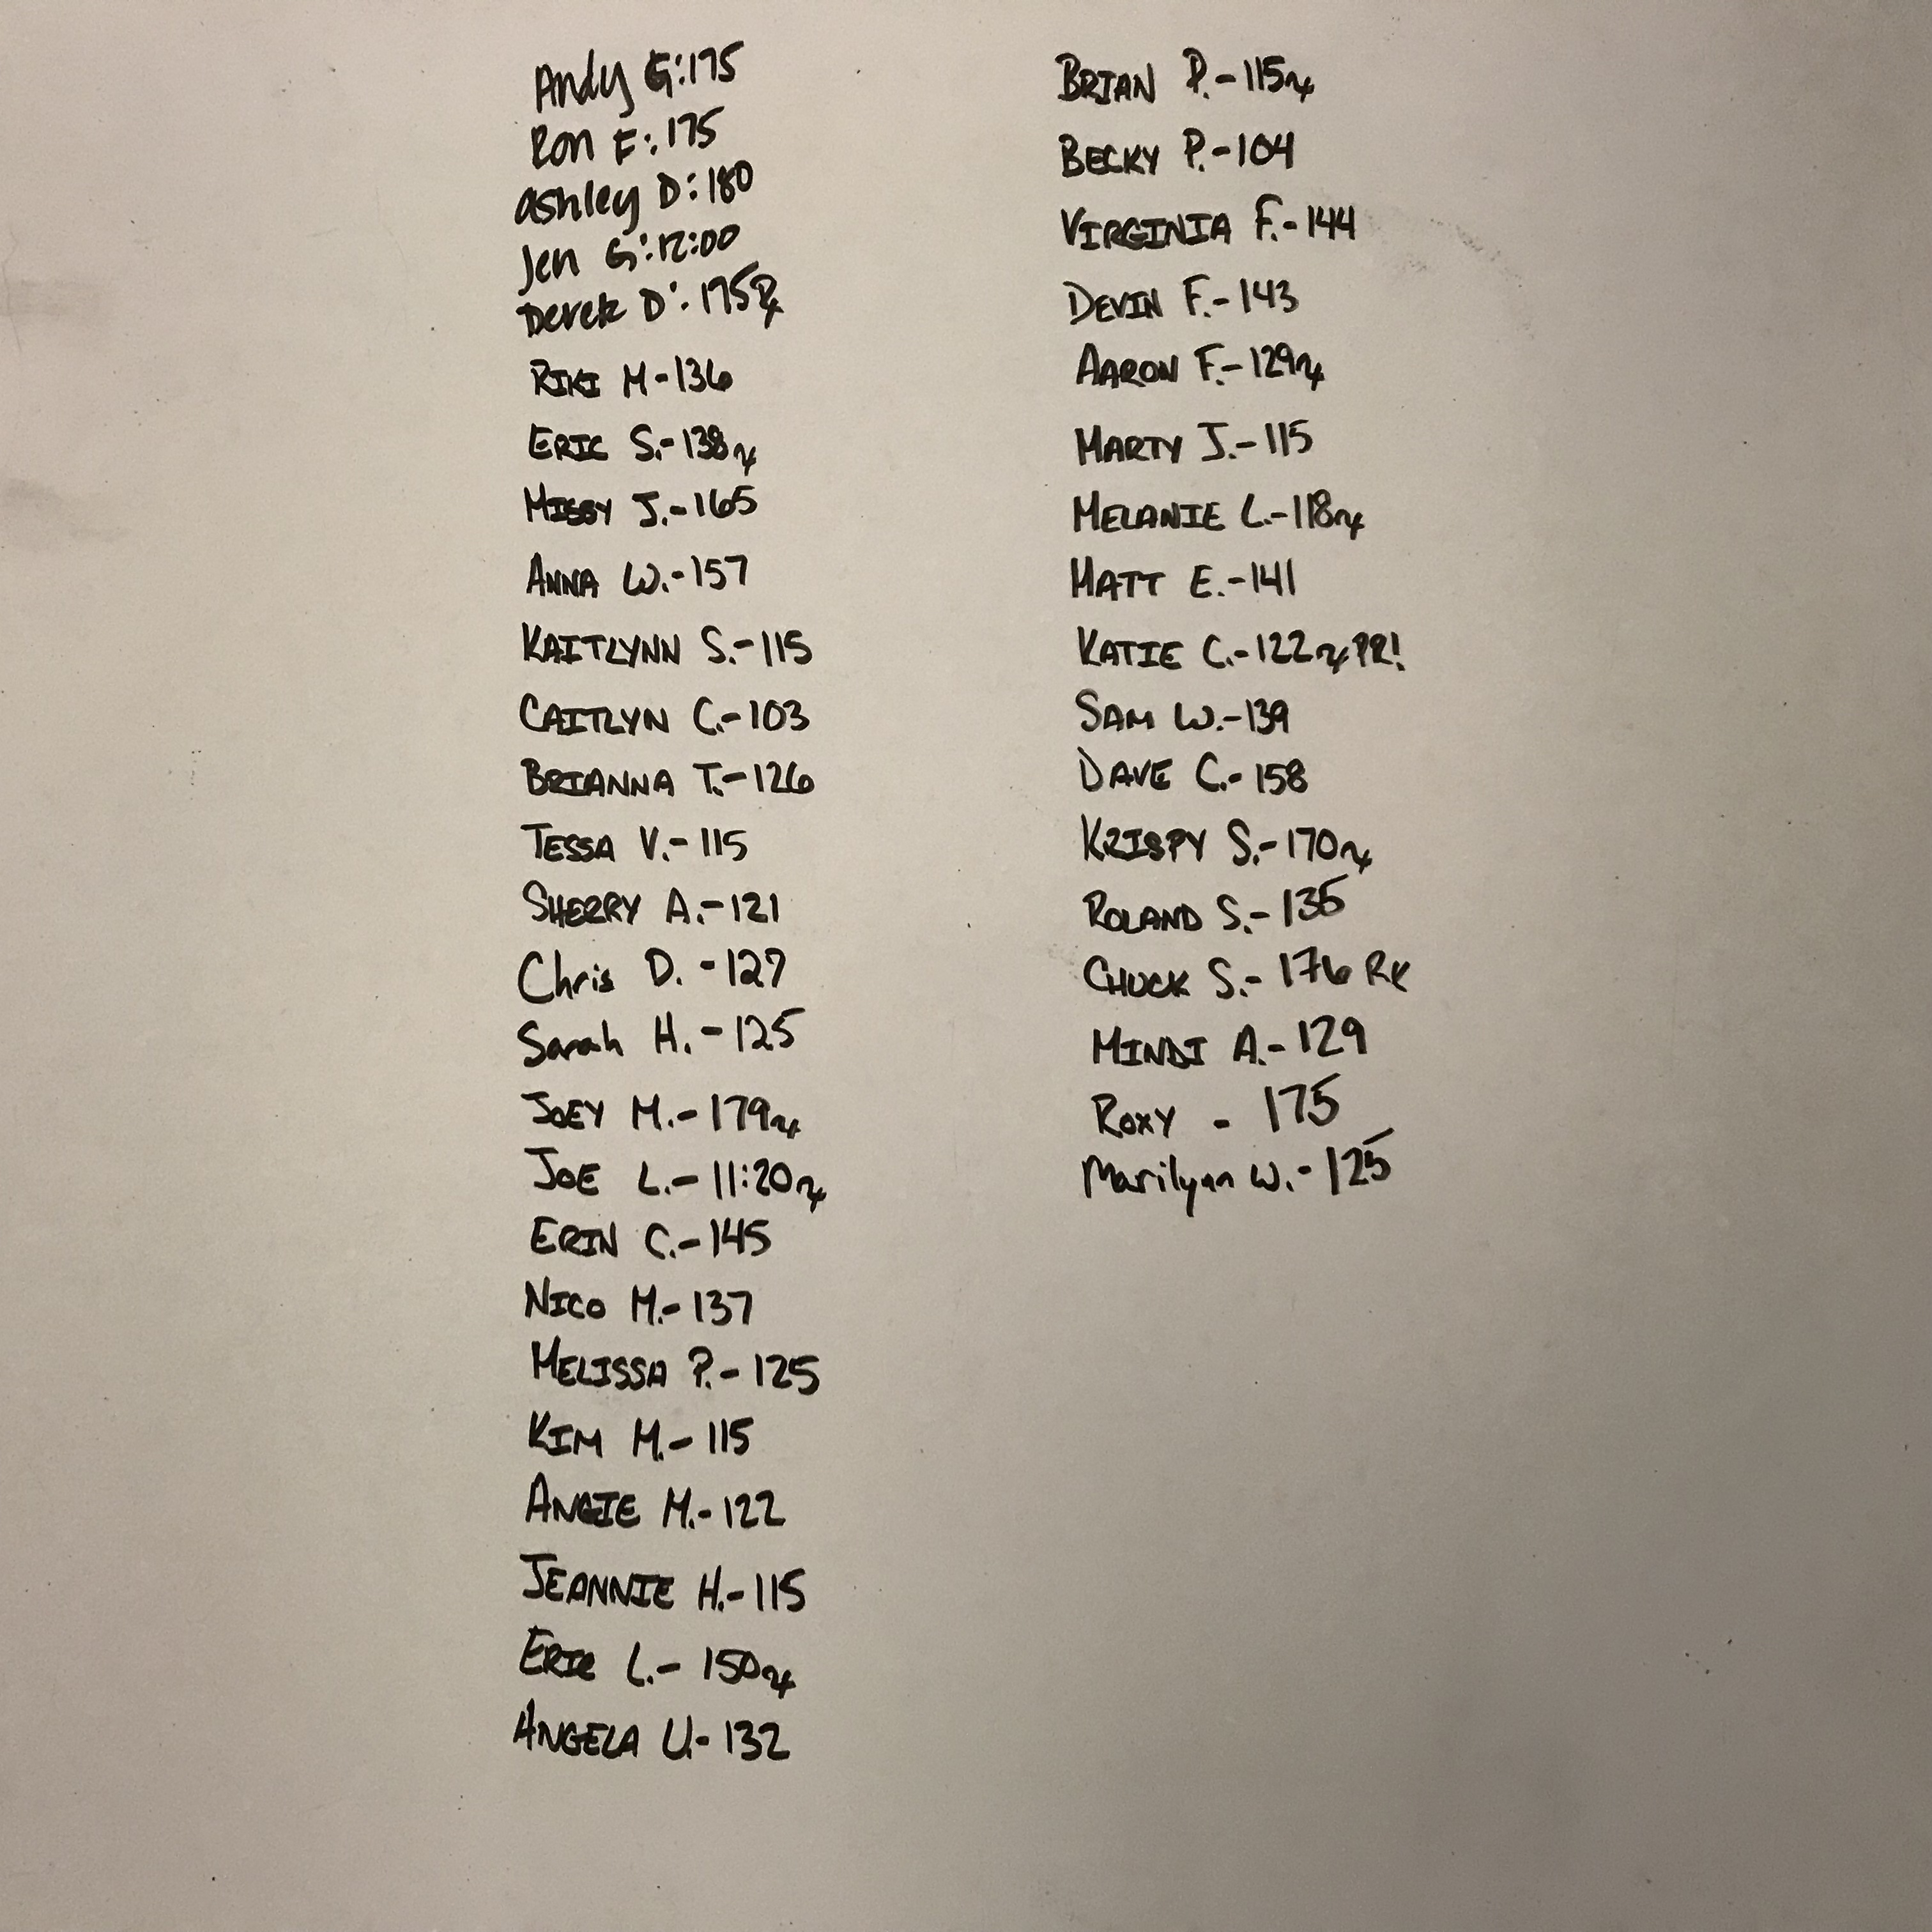 Andy G: 175
Ron F: 175
Ashley D: 180
Jen G: 12:00
Derek D: 175 Rx
RIKI M - 136
ERIC S. - 138 rx
MISSY J. - 165
ANNA W. - 157
KAITLYNN S. - 115
CAITLYN C. - 103
BRIANNA T. - 126
TESSA V. - 115
SHERRY A. - 121
Chris D. - 127
Sarah H. - 125
JOEY M. - 179 rx
JOE L. - 11:20 rx
ERIN C. - 145
NICO M. - 137
MELISSA P. - 125
KIM M. - 115
ANGIE M. - 122
JEANNIE H. - 115
ERIC L. - 150 rx
ANGELA U. - 132
BRIAN P. - 115 rx
BECKY P. - 104
VIRGINIA F. - 144
DEVIN F. - 143
AARON F. - 129 rx
MARTY J. - 115
MELANIE L. - 118 rx
MATT E. - 141
KATIE C. - 122 rx PR!
SAM W. - 139
DAVE C. - 158
KRISPY S. - 170 rx
ROLAND S. - 135
CHUCK S. - 176 RX
MINDI A. - 129
ROXY - 175
Marilynn W. - 125